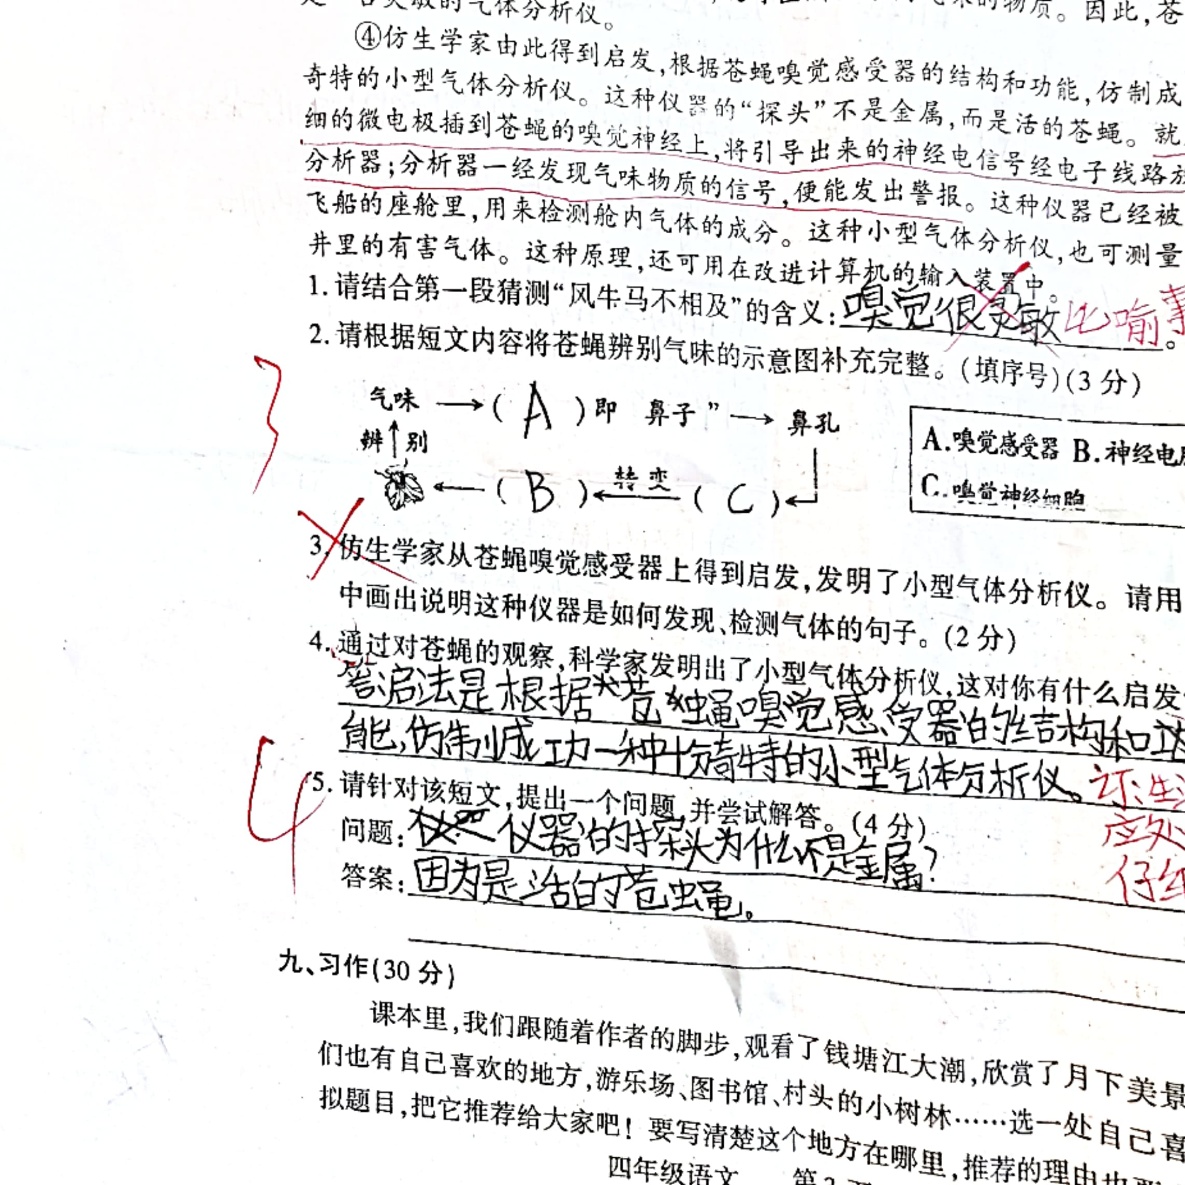 是一台灵敏的气体分析仪。
的物质。因此,苍
④仿生学家由此得到启发,根据苍蝇嗅觉感受器的结构和功能,仿制成
奇特的小型气体分析仪。这种仪器的“探头”不是金属,而是活的苍蝇。就
细的微电极插到苍蝇的嗅觉神经上,将引导出来的神经电信号经电子线路放
分析器;分析器一经发现气味物质的信号,便能发出警报。这种仪器已经被
飞船的座舱里,用来检测舱内气体的成分。这种小型气体分析仪,也可测量
井里的有害气体。这种原理,还可用在改进计算机的输入装置中。
1.请结合第一段猜测“风牛马不相及”的含义:嗅觉很灵敏 比喻事。
2.请根据短文内容将苍蝇辨别气味的示意图补充完整。(填序号)(3分)
3
气味 (A)即 鼻子” 鼻孔
辨别
(B) 转变 (C)
A.嗅觉感受器 B.神经电
C.嗅觉神经细胞
3.仿生学家从苍蝇嗅觉感受器上得到启发,发明了小型气体分析仪。请用
中画出说明这种仪器是如何发现、检测气体的句子。(2分)
4.通过对苍蝇的观察,科学家发明出了小型气体分析仪,这对你有什么启发
是根据 苍蝇嗅觉感受器的结构和功
能,仿制成功一种十分奇特的小型气体分析仪。
应处
仔细
4
5.请针对该短文,提出一个问题,并尝试解答。(4分)
问题:仪器的探头为什么不是金属?
答案:因为是活的苍蝇。
九、习作(30分)
课本里,我们跟随着作者的脚步,观看了钱塘江大潮,欣赏了月下美景
们也有自己喜欢的地方,游乐场、图书馆、村头的小树林……选一处自己喜
拟题目,把它推荐给大家吧!要写清楚这个地方在哪里,推荐的理由也
四年级语文 第3